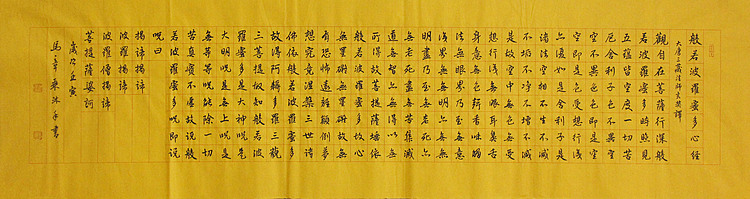 般若波羅蜜多心經
大唐三藏法師玄奘譯
觀自在菩薩行深般
若波羅蜜多時照見
五蘊皆空度一切苦
厄舍利子色不異空
空不異色色即是空
空即是色受想行識
亦復如是舍利子是
諸法空相不生不滅
不垢不淨不增不減
是故空中無色無受
想行識無眼耳鼻舌
身意無色聲香味觸
法無眼界乃至無意
識界無無明亦無無
明盡乃至無老死亦
無老死盡無苦集滅
道無智亦無得以無
所得故菩提薩埵依
般若波羅蜜多故心
無罣礙無罣礙故無
有恐怖遠離顛倒夢
想究竟涅槃三世諸
佛依般若波羅蜜多
故得阿耨多羅三藐
三菩提故知般若波
羅蜜多是大神咒是
大明咒是無上咒是
無等等咒能除一切
苦真實不虛故說般
若波羅蜜多咒即說
咒曰
揭諦揭諦
波羅揭諦
波羅僧揭諦
菩提薩婆訶
歲次壬寅
馬沐手書